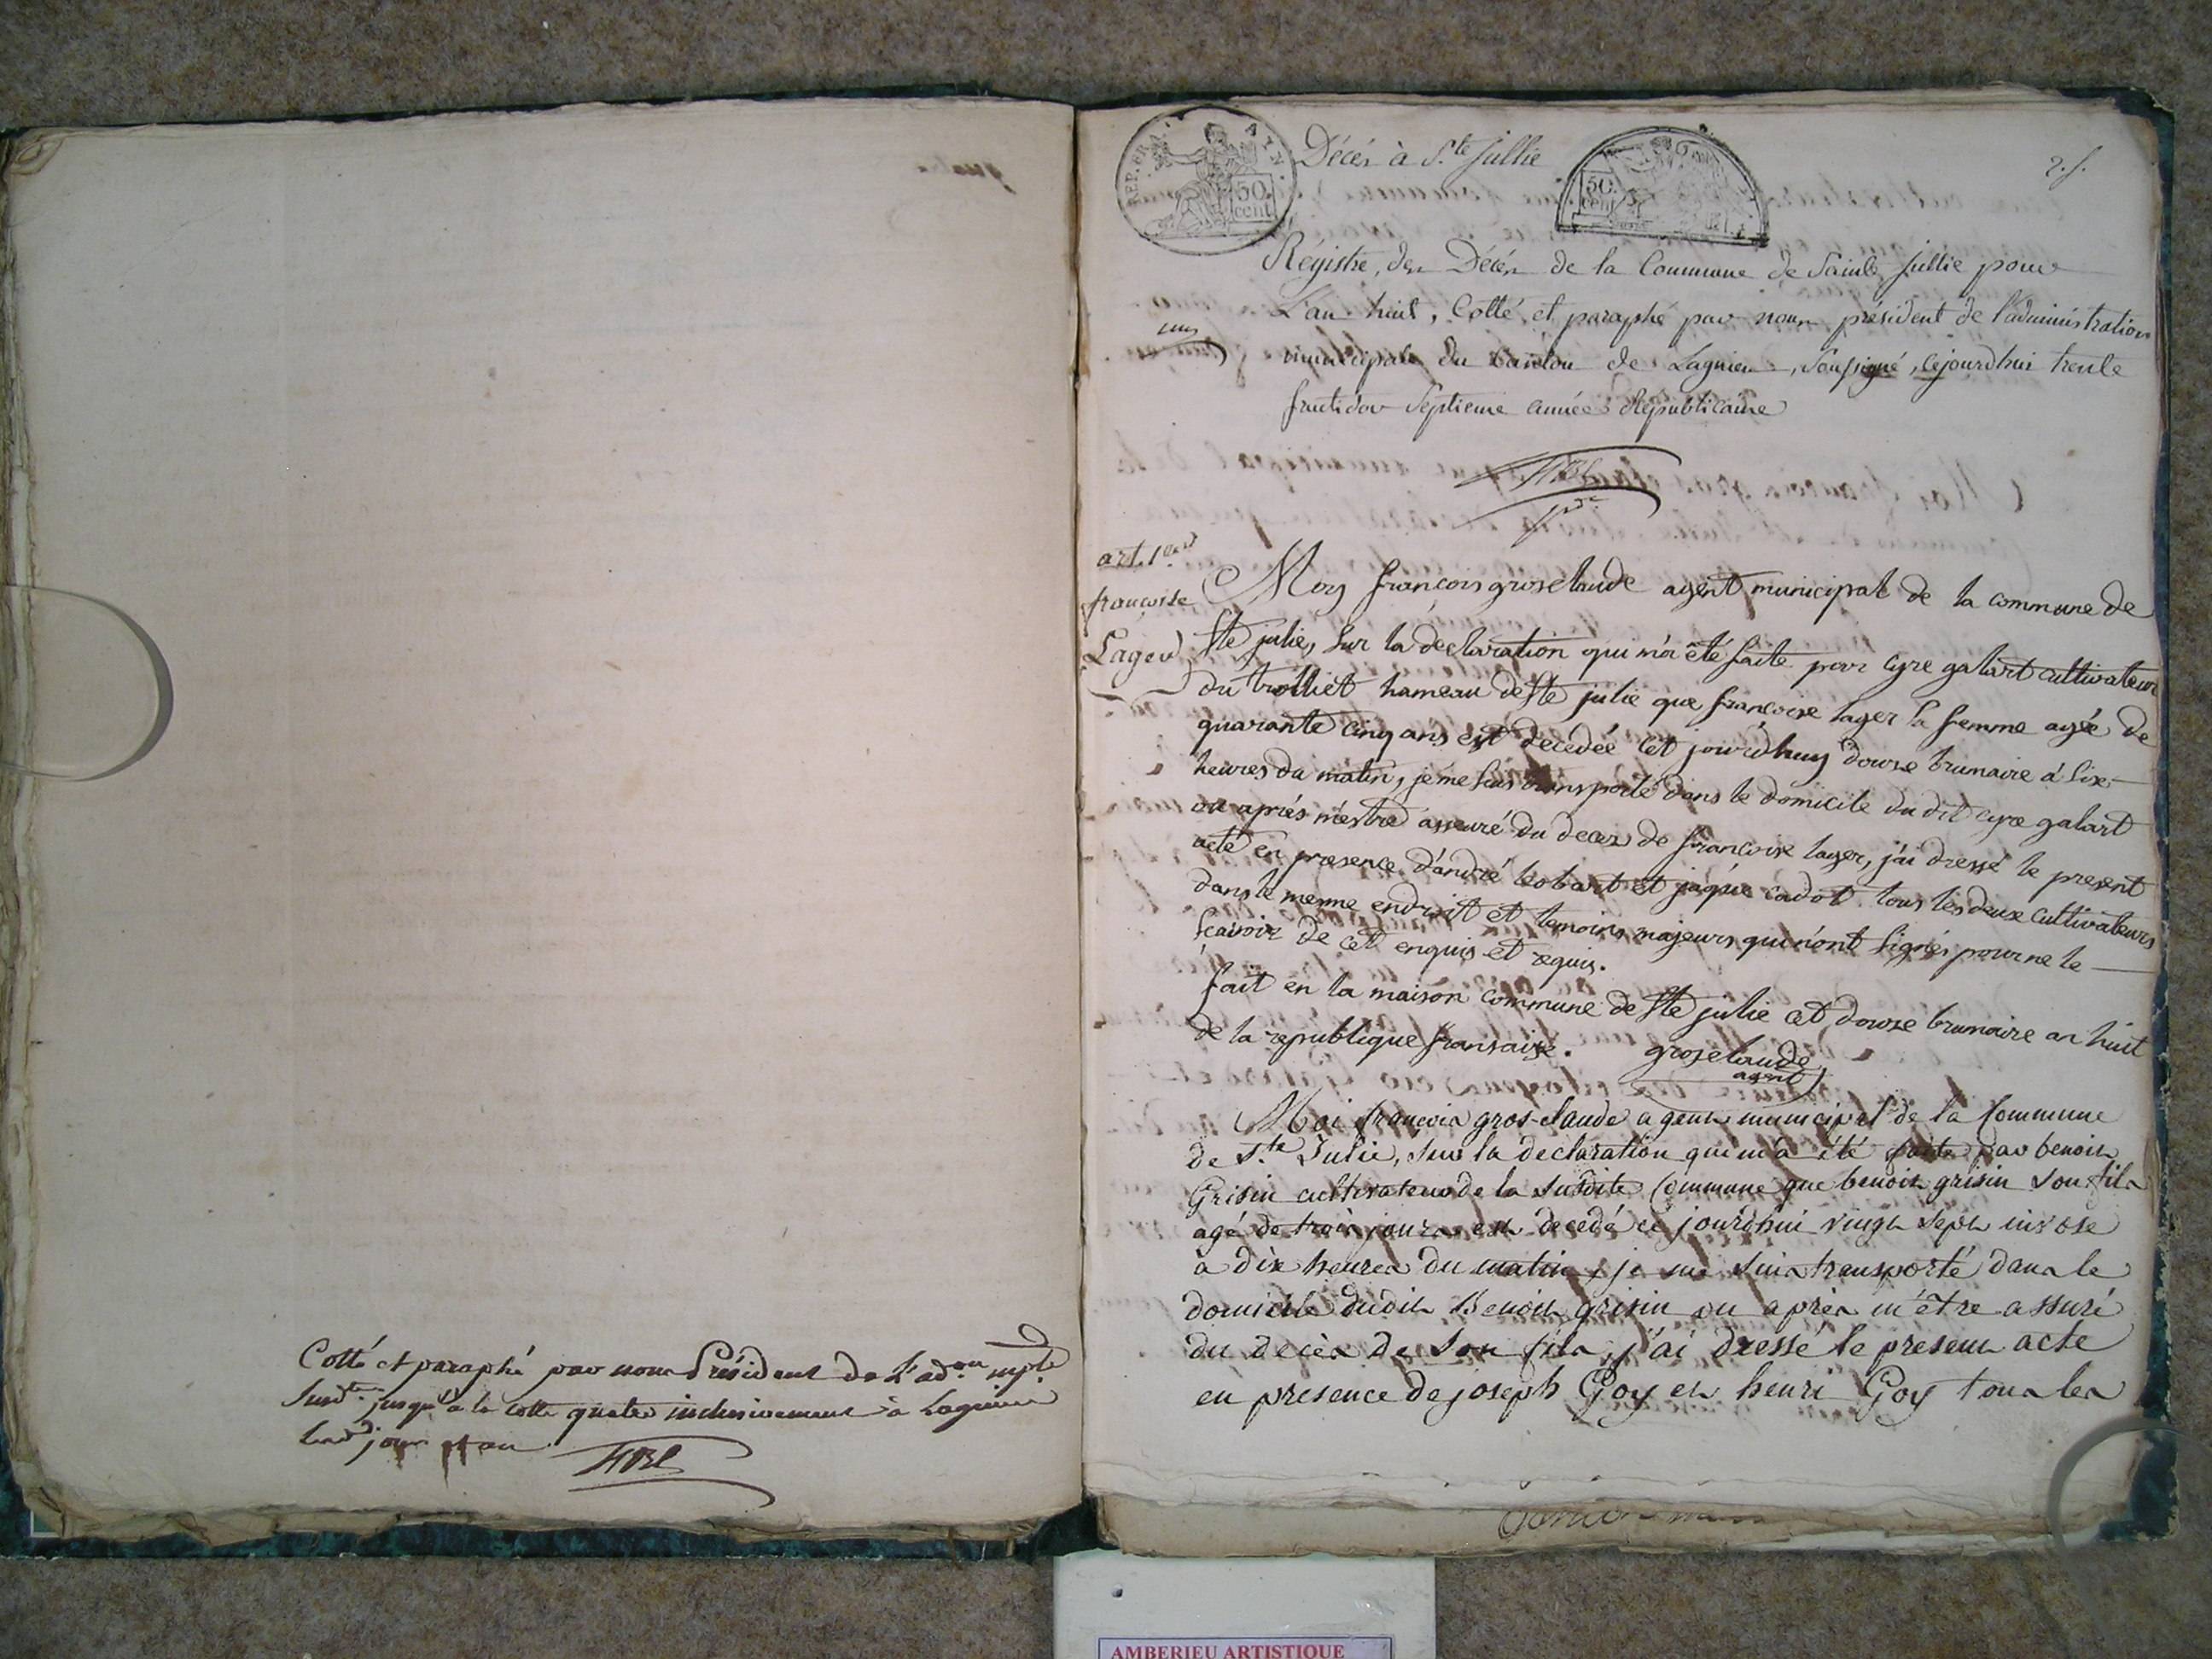 Cotté et paraphé par nous Président de L'ad.on mple
susd.te jusqu'à la cotte quatre inclusivement à Lagnieu
lesd. jour et an
REP. FRA.
AYN.
50.
cent
Décès à S.te Jullie
50.
cent
2. f.
Régistre, des Décès de la Commune de Sainte Jullie pour
L'an huit, Cotté, et paraphé par nous, président de l'administration
municipale du Canton de Lagnieu, Soussigné, cejourdhui trente
fructidor Septieme année Républicaine
art. 1er
françoise
Lager
Moy françois groselaude agent municipal de la commune de
Ste julie, sur la declaration qui m'a été faite par cyre galart cultivateur
du trolliet hameau de Ste julie que francoise lager sa femme agée de
quarante cinq ans est decedée cet jourdhuy douze brumaire à six
heures du matin, je me suis transporté dans le domicile du dit cyre galart
ou aprés m'estre asseuré du decez de francoise lager, j'ai dressé le present
acte en presence d'andré leobart et jaque cadot tous les deux cultivateurs
dans le meme endroit et temoins majeurs qui n'ont signés pour ne le
scavoir de cet enquis et requis.
fait en la maison commune de Ste julie cet douze brumaire an huit
de la republique fransaise. groselaude
agent
Moi françois gros-claude agent municipal de la Commune
de S.te Julie, sur la declaration qui m'a été faite par benoit
Grisin cultivateur de la susdite Commune que benoit grisin son fils
agé de trois jours est decedé ce jourd'hui vingt sept nivose
à dix heures du matin, je me suis transporté dans le
domicile dudit Benoit grisin ou après m'être assuré
du decès de son fils, j'ai dressé le present acte
en presence de joseph Goy et henri Goy tous les
AMBERIEU ARTISTIQUE